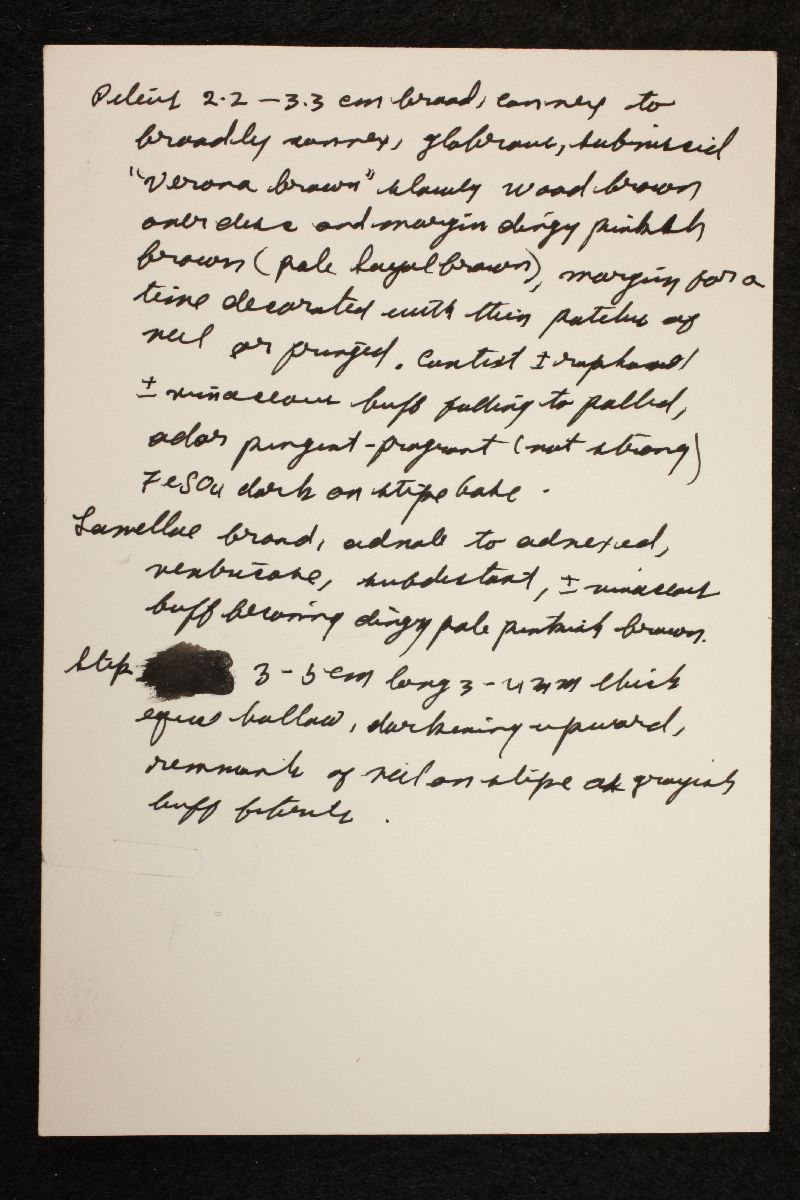 Pileus 2.2 – 3.3 cm broad, convex to
broadly convex, glabrous, subviscid
"Verona brown" slowly wood brown
over disc and margin dingy pinkish
brown (pale hazel brown), margin for a
time decorated with thin patches of
veil or fringed. Context ±
± vinaceous buff fading to pallid,
odor pungent-fragrant (not strong)
FeSO4 dark on stipe base.
Lamellae broad, adnate to adnexed,
ventricose, subdistant, ± vinaceous
buff becoming dingy pale pinkish brown.
Stip 3 – 5 cm long 3 – 4 mm thick
equal hollow, darkening upward,
remnants of veil on stipe as grayish
buff fibrils.